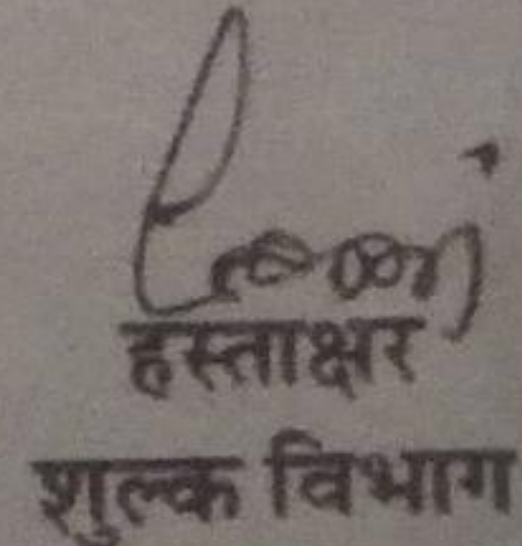 हस्ताक्षर
शुल्क विभाग